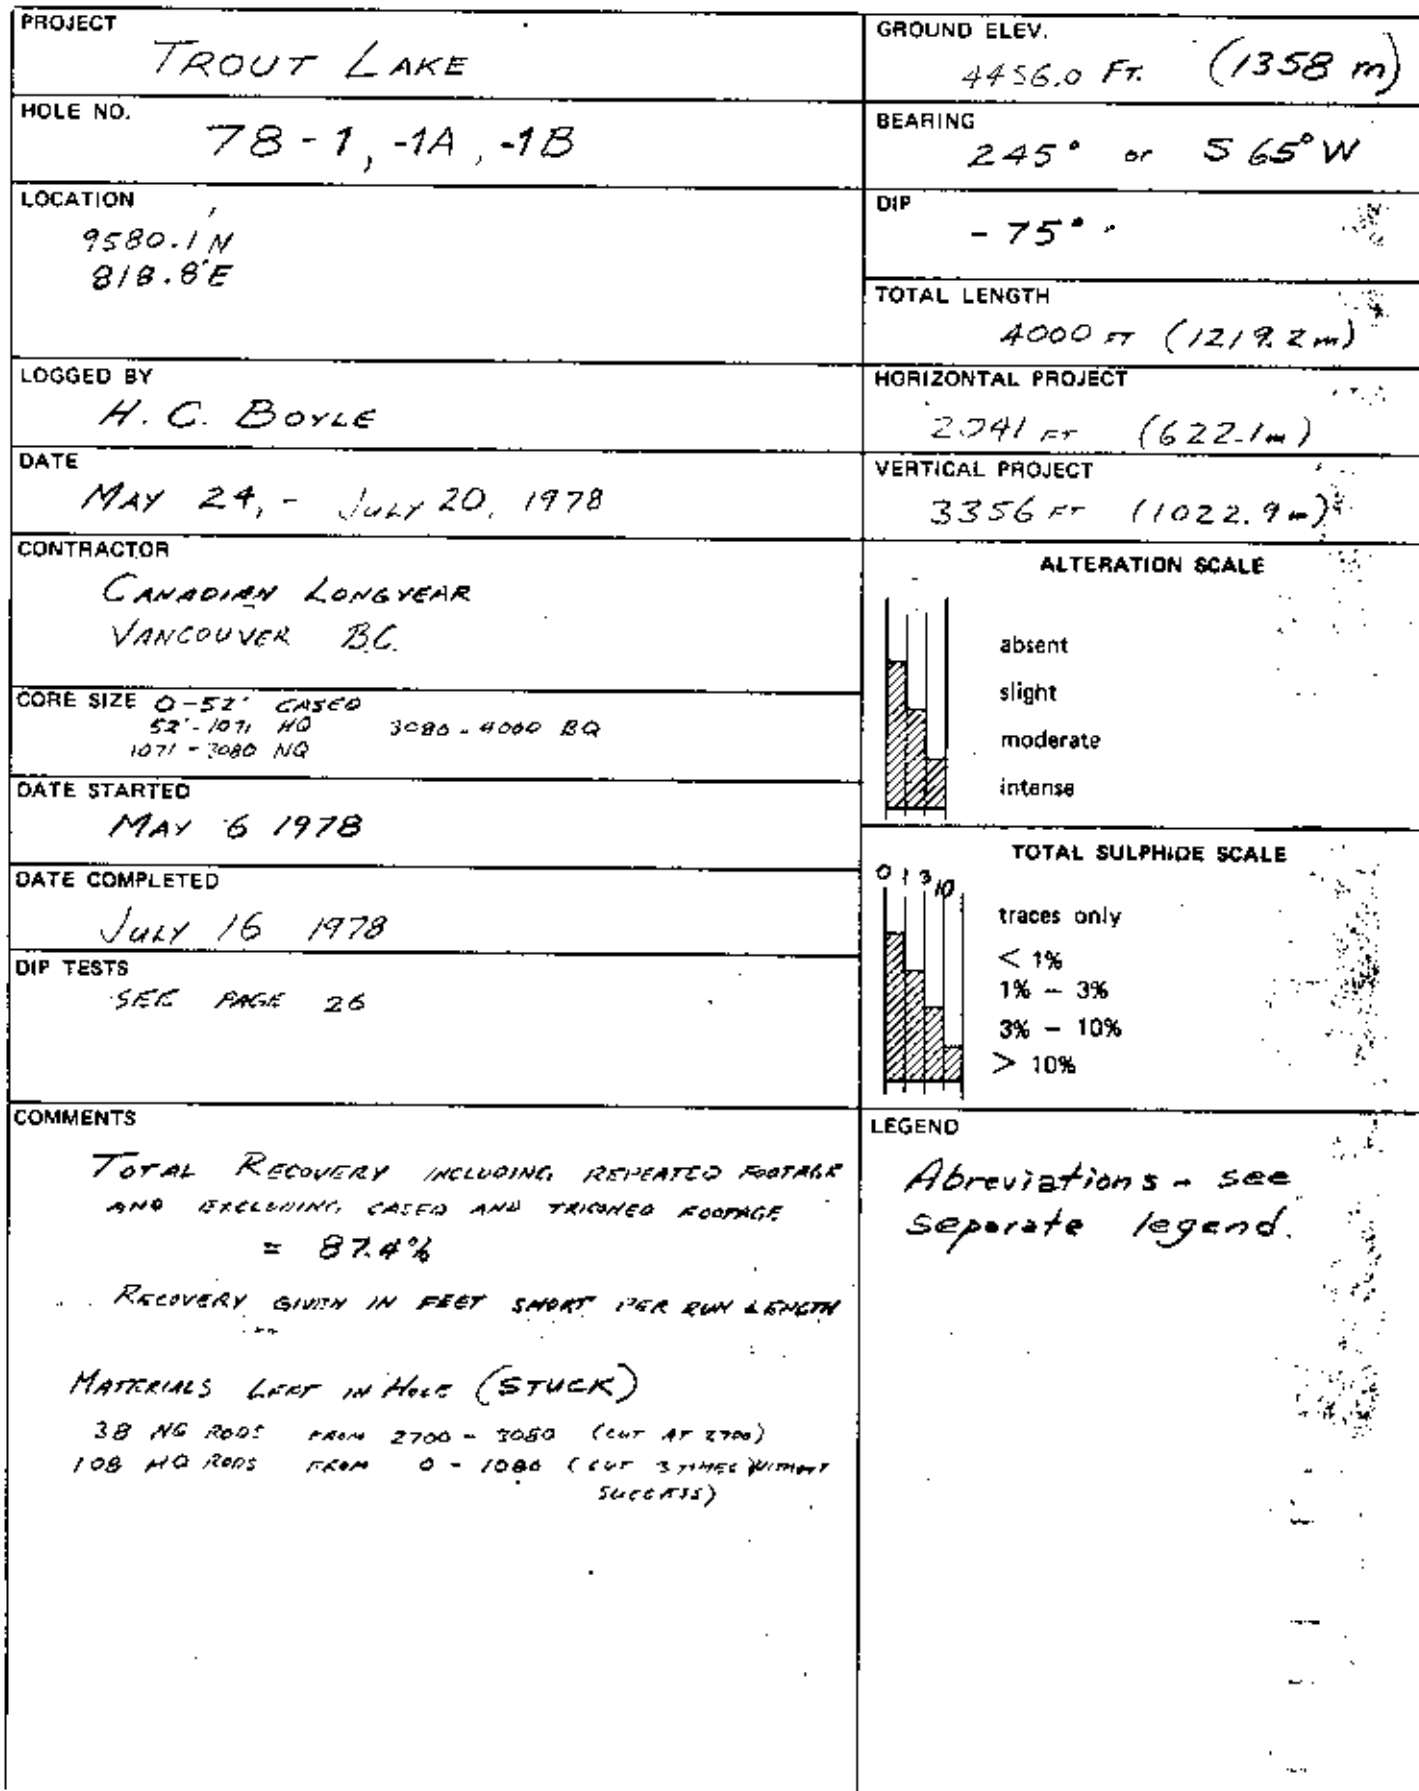 PROJECT
TROUT LAKE
HOLE NO.
78-1, -1A, -1B
LOCATION
9580.1'N
818.8'E
LOGGED BY
H. C. BOYLE
DATE
MAY 24, - JULY 20, 1978
CONTRACTOR
CANADIAN LONGYEAR
VANCOUVER B.C.
CORE SIZE 0-52' CASED
52'-1071 HQ 3080-4000 BQ
1071-3080 NQ
DATE STARTED
MAY 6 1978
DATE COMPLETED
JULY 16 1978
DIP TESTS
SEE PAGE 26
COMMENTS
TOTAL RECOVERY INCLUDING REPEATED FOOTAGE
AND EXCLUDING CASED AND TRICONED FOOTAGE
= 87.4%
RECOVERY GIVEN IN FEET SHORT PER RUN LENGTH
MATERIALS LEFT IN HOLE (STUCK)
38 NQ RODS FROM 2700 - 3080 (CUT AT 2700)
108 HQ RODS FROM 0 - 1080 (CUT 3 TIMES WITHOUT
SUCCESS)
GROUND ELEV.
4456.0 FT. (1358 m)
BEARING
245° or S 65° W
DIP
- 75°
TOTAL LENGTH
4000 FT (1219.2 m)
HORIZONTAL PROJECT
2041 FT (622.1 m)
VERTICAL PROJECT
3356 FT (1022.9 m)
ALTERATION SCALE
absent
slight
moderate
intense
TOTAL SULPHIDE SCALE
0 1 3 10
traces only
< 1%
1% – 3%
3% – 10%
> 10%
LEGEND
Abreviations - see
separate legend.